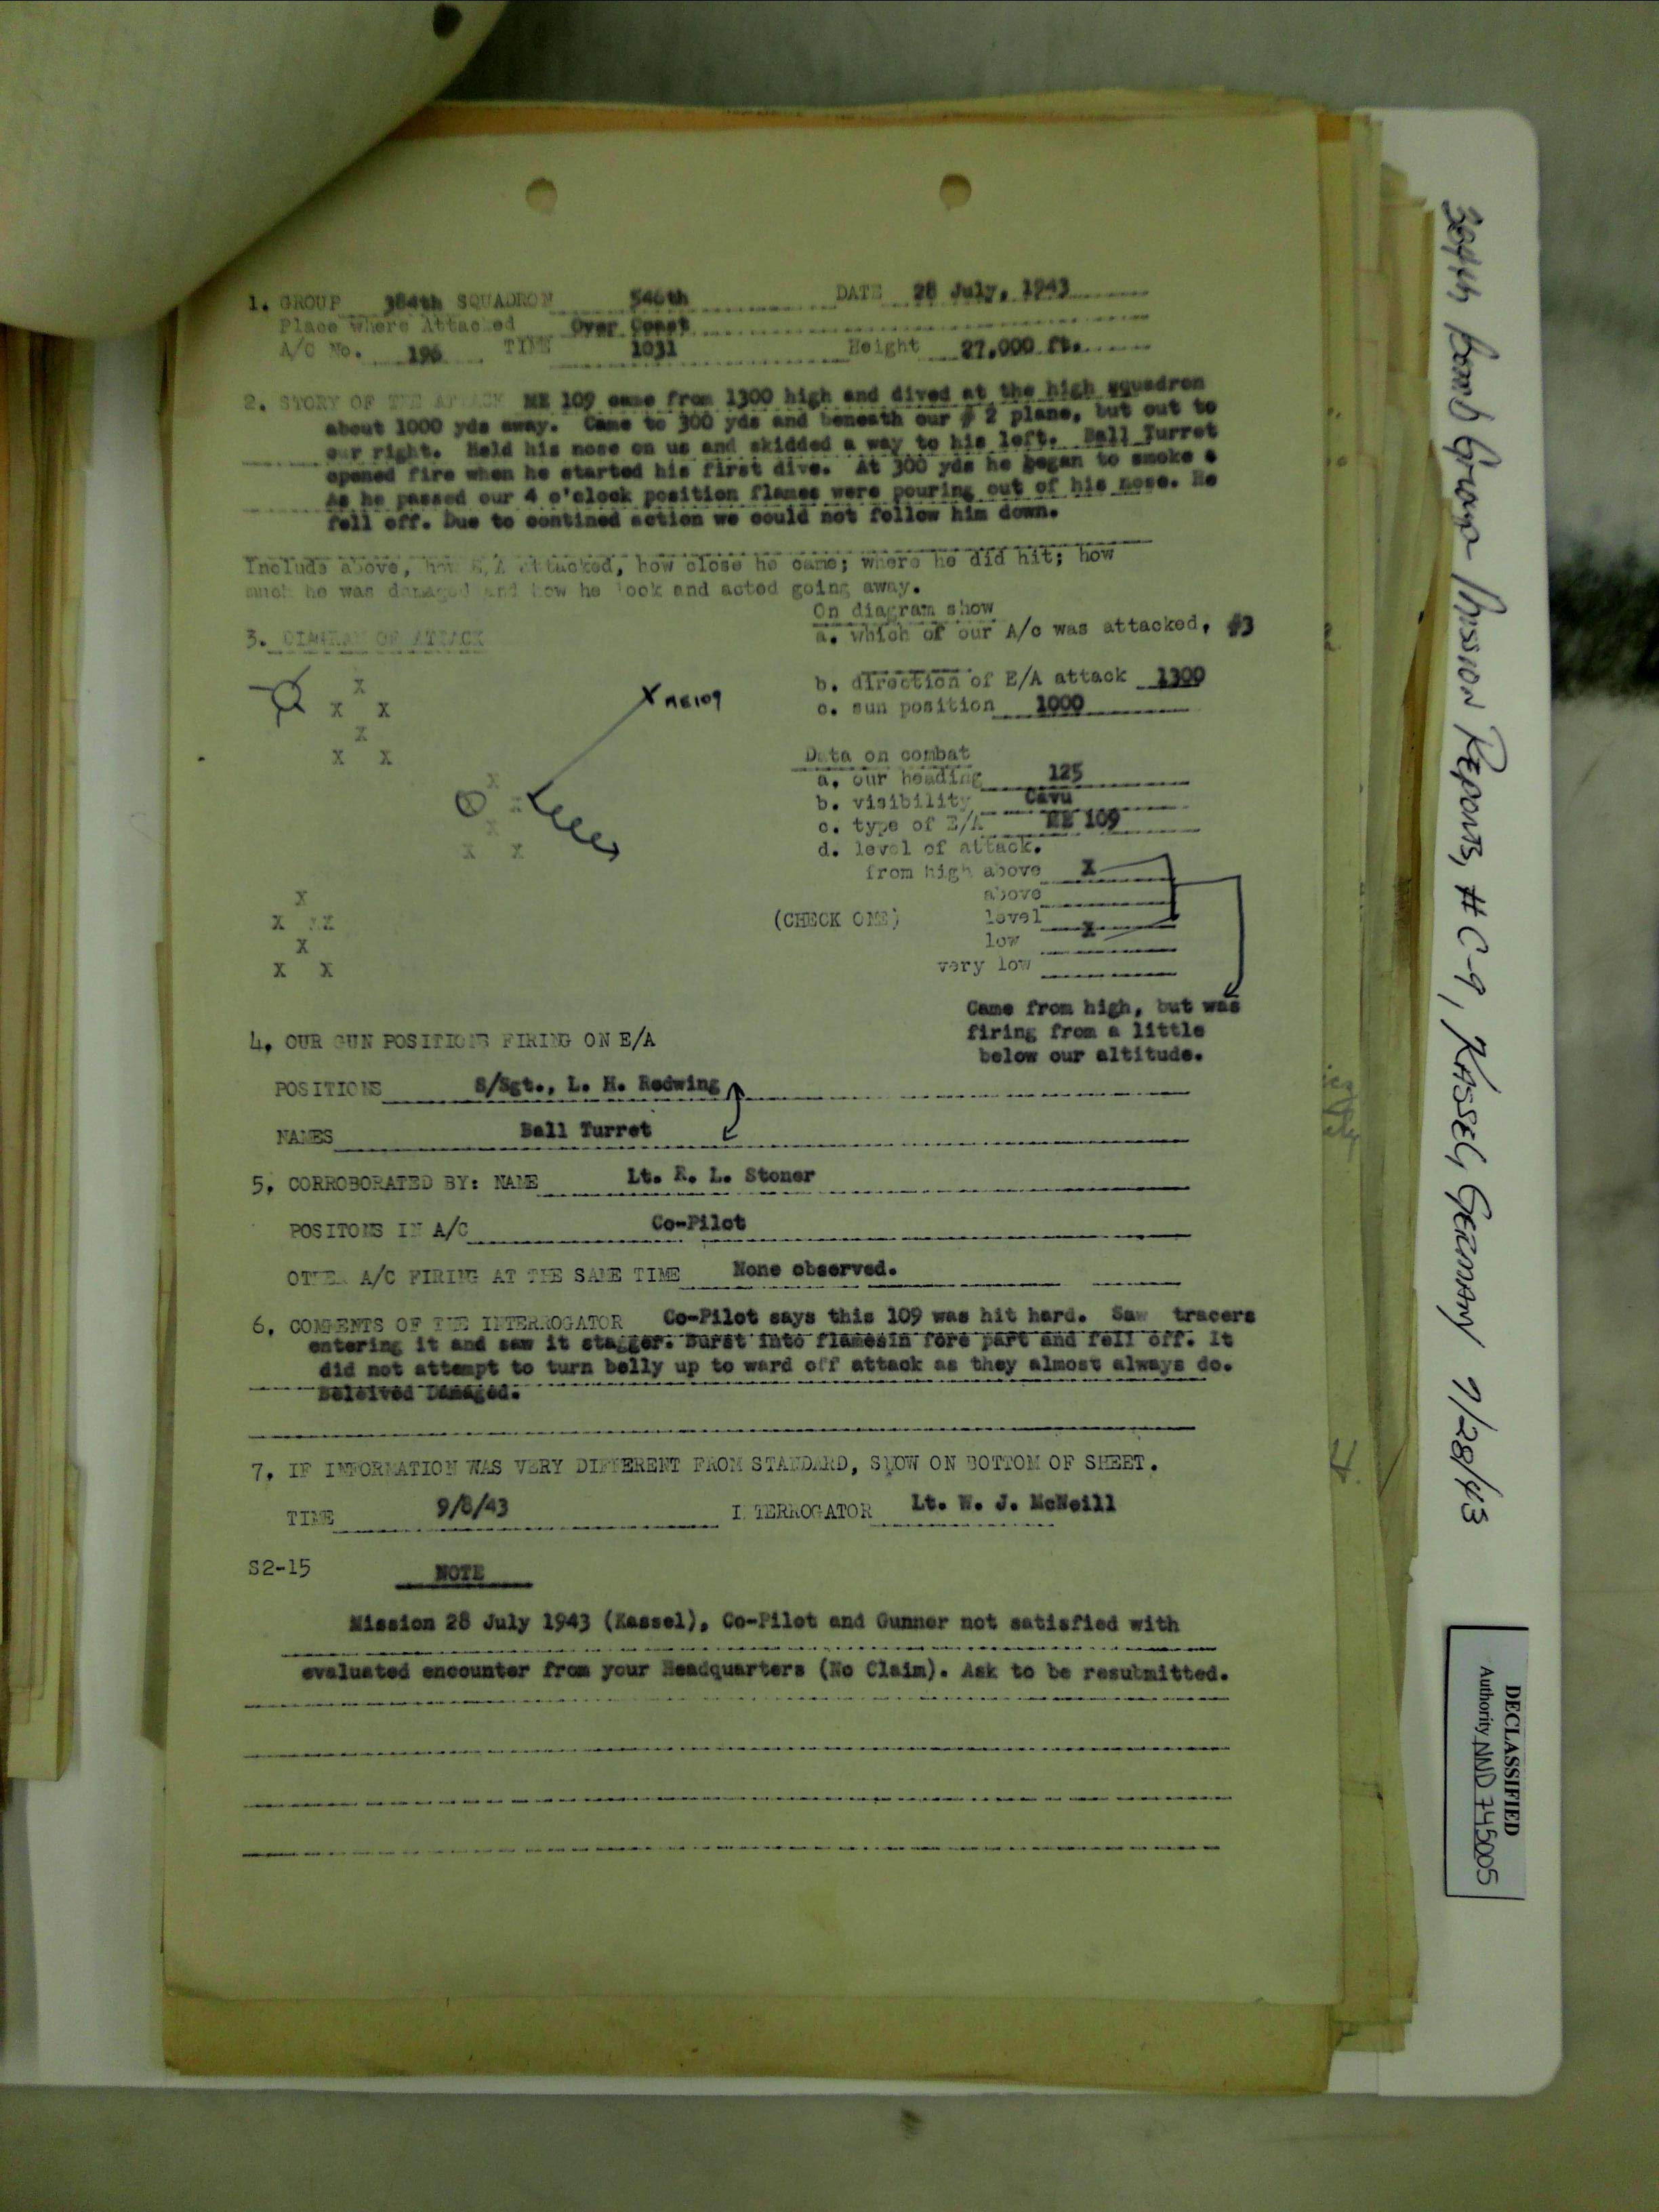 1. GROUP 384th SQUADRON 546th DATE 28 July, 1943
Place Where Attacked Over Coast
A/C No. 196 TIME 1031 Height 27,000 ft.
2. STORY OF THE ATTACK ME 109 came from 1300 high and dived at the high squadron
about 1000 yds away. Came to 300 yds and beneath our # 2 plane, but out to
our right. Held his nose on us and skidded a way to his left. Ball Turret
opened fire when he started his first dive. At 300 yds he began to smoke
As he passed our 4 o'clock position flames were pouring out of his nose. He
fell off. Due to contined action we could not follow him down.
Include above, how E/A attacked, how close he came; where he did hit; how
much he was damaged and how he look and acted going away.
On diagram show
3. DIAGRAM OF ATTACK
a. which of our A/c was attacked, #3
b. direction of E/A attack 1300
c. sun position 1000
X ME109
X
X X
X
X X
X
X
X
X X
X
X XX
X
X X
Data on combat
a. our heading 125
b. visibility Cavu
c. type of E/A ME 109
d. level of attack.
from high above X
above
(CHECK ONE) level
X
low
very low
Came from high, but was
firing from a little
below our altitude.
4. OUR GUN POSITIONS FIRING ON E/A
POSITIONS S/Sgt., L. H. Redwing
NAMES Ball Turret
5. CORROBORATED BY: NAME Lt. R. L. Stoner
POSITONS IN A/C Co-Pilot
OTHER A/C FIRING AT THE SAME TIME None observed.
6. COMMENTS OF THE INTERROGATOR Co-Pilot says this 109 was hit hard. Saw tracers
entering it and saw it stagger. Burst into flamesin fore part and fell off. It
did not attempt to turn belly up to ward off attack as they almost always do.
Beleived Damaged.
7. IF INFORMATION WAS VERY DIFFERENT FROM STANDARD, SHOW ON BOTTOM OF SHEET.
TIME 9/8/43 INTERROGATOR Lt. W. J. McNeill
S2-15 NOTE
Mission 28 July 1943 (Kassel), Co-Pilot and Gunner not satisfied with
evaluated encounter from your Headquarters (No Claim). Ask to be resubmitted.
384th Bomb Group Mission Reports, # C-9, KASSEL, GERMANY 7/28/43
DECLASSIFIED
Authority NND 745005